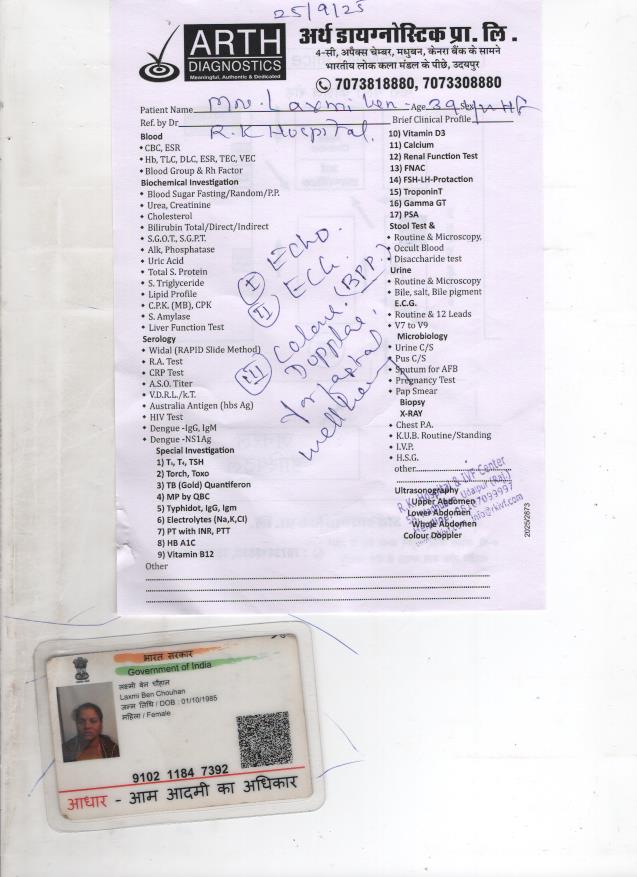 25/9/25
ARTH
DIAGNOSTICS
Meaningful, Authentic & Dedicated
अर्थ डायग्नोस्टिक प्रा. लि .
4-सी, अपैक्स चेम्बर, मधुबन, केनरा बैंक के सामने
भारतीय लोक कला मंडल के पीछे, उदयपुर
7073818880, 7073308880
Patient Name Mrs. Laxmi ben Age 39 Sex
Ref. by Dr R.K Hospital. Brief Clinical Profile
Blood
• CBC, ESR
• Hb, TLC, DLC, ESR, TEC, VEC
• Blood Group & Rh Factor
Biochemical Investigation
• Blood Sugar Fasting/Random/P.P.
• Urea, Creatinine
• Cholesterol
• Bilirubin Total/Direct/Indirect
• S.G.O.T., S.G.P.T.
• Alk, Phosphatase
• Uric Acid
• Total S. Protein
• S. Triglyceride
• Lipid Profile
• C.P.K. (MB), CPK
• S. Amylase
• Liver Function Test
Serology
• Widal (RAPID Slide Method)
• R.A. Test
• CRP Test
• A.S.O. Titer
• V.D.R.L./k.T.
• Australia Antigen (hbs Ag)
• HIV Test
• Dengue -IgG, IgM
• Dengue -NS1Ag
Special Investigation
1) T₃, T₄, TSH
2) Torch, Toxo
3) TB (Gold) Quantiferon
4) MP by QBC
5) Typhidot, IgG, Igm
6) Electrolytes (Na,K,Cl)
7) PT with INR, PTT
8) HB A1C
9) Vitamin B12
Other
10) Vitamin D3
11) Calcium
12) Renal Function Test
13) FNAC
14) FSH-LH-Protaction
15) TroponinT
16) Gamma GT
17) PSA
Stool Test &
• Routine & Microscopy,
• Occult Blood
• Disaccharide test
Urine
• Routine & Microscopy
• Bile, salt, Bile pigment
E.C.G.
• Routine & 12 Leads
• V7 to V9
Microbiology
• Urine C/S
• Pus C/S
• Sputum for AFB
• Pregnancy Test
• Pap Smear
Biopsy
X-RAY
• Chest P.A.
• K.U.B. Routine/Standing
• I.V.P.
• H.S.G.
other
Ultrasonography
Upper Abdomen
Lower Abdomen
Whole Abdomen
Colour Doppler
I Echo.
II ECG.
III Colour (BPP)
Dopplae,
for faetal
well
R.K. Hospital & IVF Center
Udaipur (Raj.)
info@rkivf.com
2025/2673
भारत सरकार
Government of India
लक्ष्मी बेन चौहान
Laxmi Ben Chouhan
जन्म तिथि / DOB : 01/10/1985
महिला / Female
9102 1184 7392
आधार - आम आदमी का अधिकार